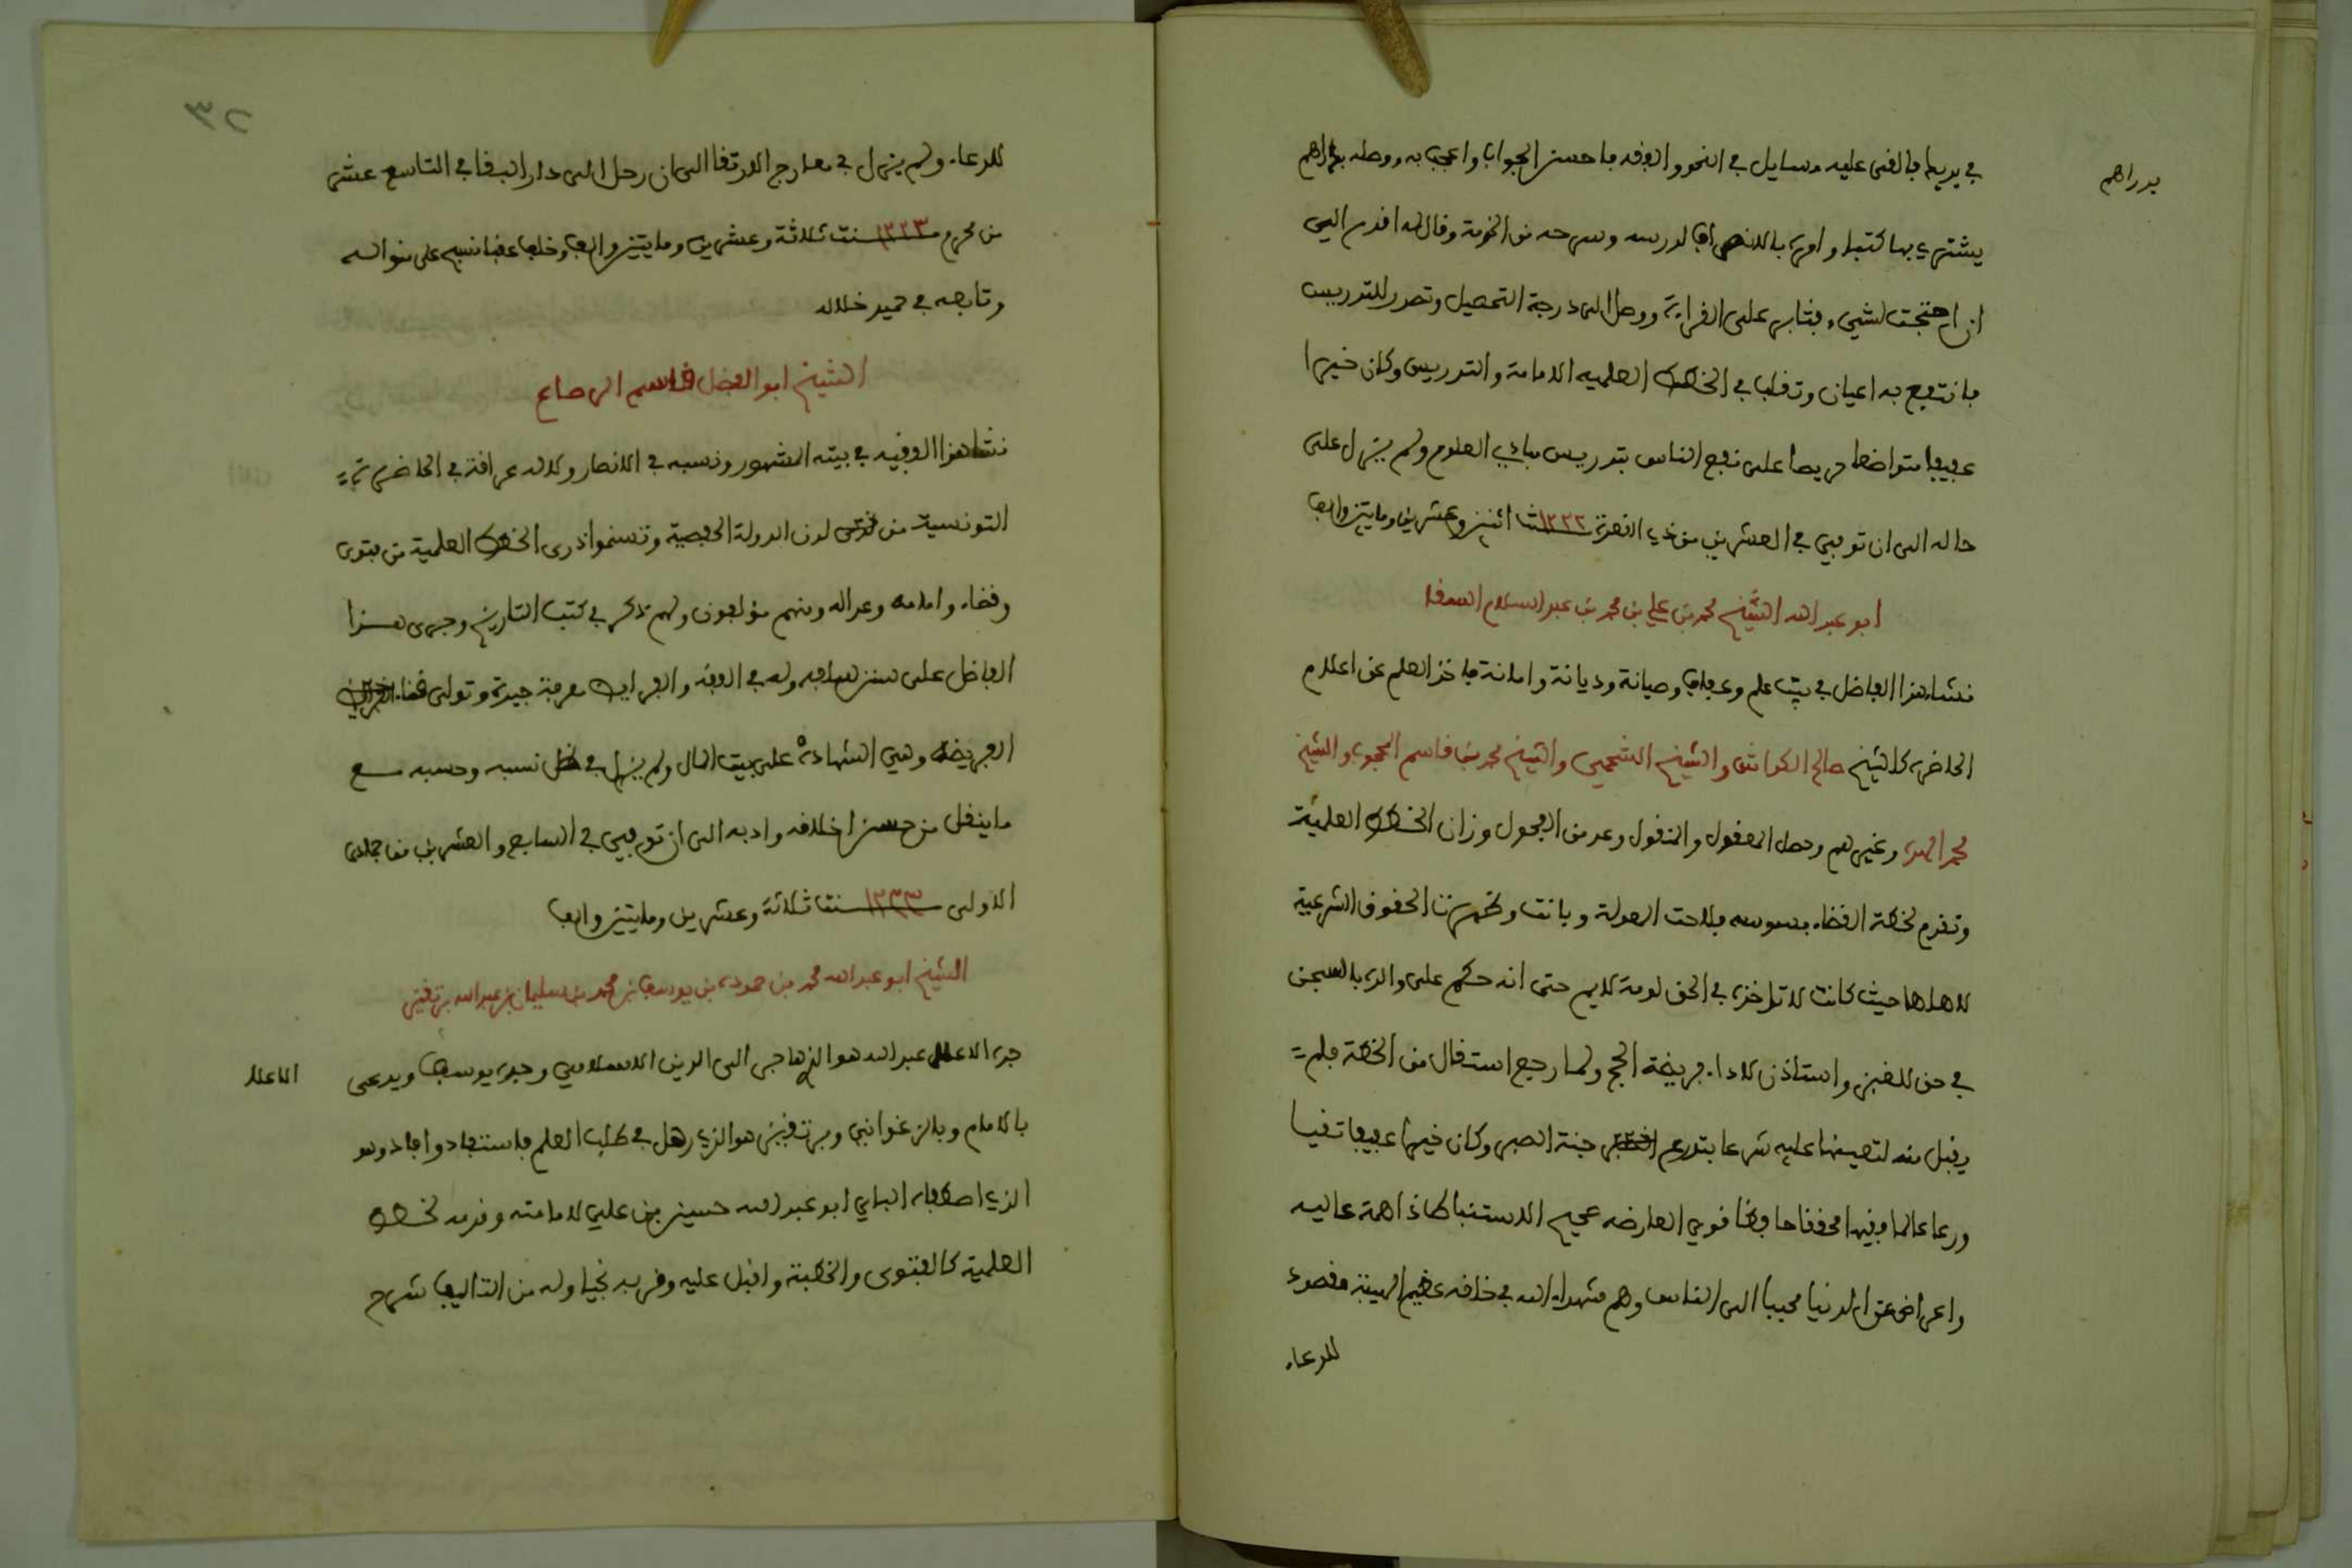 في يديه فالقى عليه مسايل في النحو والفقه فاحسن الجواب واعجب به ووصله بدراهم
بدراهم
يشتري بها كتبا وامره بالانصراف لدرسه وسرحه من الخدمة وقال له اقدم الي
ان احتجت لشيء فثابر على القراءة ووصل الى درجة التحصيل وتصدر للتدريس
فانتفع به اعيان وتقلب في الخطط العلميه الامامة والتدريس وكان خيرا
عفيفا متواضعا حريصا على نفع الناس بتدريس مبادي العلوم ولم يزل على
حاله الى ان توفي في العشرين من ذي القعدة ١٢٢٢ سنة اثنين وعشرين ومايتين والف
ابو عبد الله الشيخ محمد بن علي بن محمد بن عبد السلام السقا
نشا هذا الفاضل في بيت علم وعفاف وصيانة وديانة وامانة فاخذ العلم عن اعلام
الحاضرة كالشيخ صالح الكواش والشيخ الشحمي والشيخ محمد بن قاسم المحجوب والشيخ
محمد الهده وغيرهم وحصل المعقول والمنقول وعد من الفحول وزان الخطط العلمية
وتقدم لخطة القضاء بسوسه فلاحت العدلة وبانت وتحررت الحقوق الشرعية
لاهلها حيث كانت لا تاخذه في الحق لومة لايم حتى انه حكم على والده بالسجن
في حق للغير واستاذن لاداء فريضة الحج ولما رجع استقال من الخطة فلم
يقبل منه لتعينها عليه شرعا فتدرع جنة الصبر وكان خيرا عفيفا تقيا
ورعا عالما فقيها محققا حافظا قوي العارضه عجيب الاستنباط ذا همة عاليه
واعراض عن الدنيا محببا الى الناس وهم شهداء الله في خلقه عظيم الهيبة مقصود
للدعاء
٣٢
للدعاء ولم يزل في معارج الارتقا الى ان رحل الى دار البقا في التاسع عشر
من محرم ١٢٢٣ سنة ثلاثة وعشرين ومايتين والف وخلف عقبا نسج على منواله
وتابعه في حميد خلاله
الشيخ ابو الفضل قاسم الرصاع
نشا هذا الفقيه في بيته المشهور ونسبه في الانصار ولاله عراقة في الحاضرة
التونسية من لدن الدولة الحفصية وتسنموا ذرى الخطط العلمية من فتوى
وقضاء وامامه وعداله ومنهم مؤلفون ولهم ذكر في كتب التاريخ وجرى هذا
الفاضل على سنن سلفه وله في الفقه والفرايض معرفة جيدة وتولى قضاء
الفريضة وهي الشهادة على بيت المال ولم يزل في ظل نسبه وحسبه مع
ما ينقل من حسن اخلاقه وادبه الى ان توفي في السابع والعشرين من جمادى
الاولى ١٢٢٣ سنة ثلاثة وعشرين ومايتين والف
الشيخ ابو عبد الله محمد بن حموده بن يوسف بن محمد بن سليمان بن عبد الله برتقيز
جده الاعلا عبد الله هو الذي هاجر الى الدين الاسلامي وجده يوسف ويدعى
الاعلا
بالامام وبالزغواني وببرتقيز هو الذي رحل في طلب العلم فاستفاد وافاد وهو
الذي اصطفاه الباي ابو عبد الله حسين بن علي لامامته وقدمه لخطط
العلمية كالفتوى والخطبة واقبل عليه وقربه نجيا وله من التاليف شرح